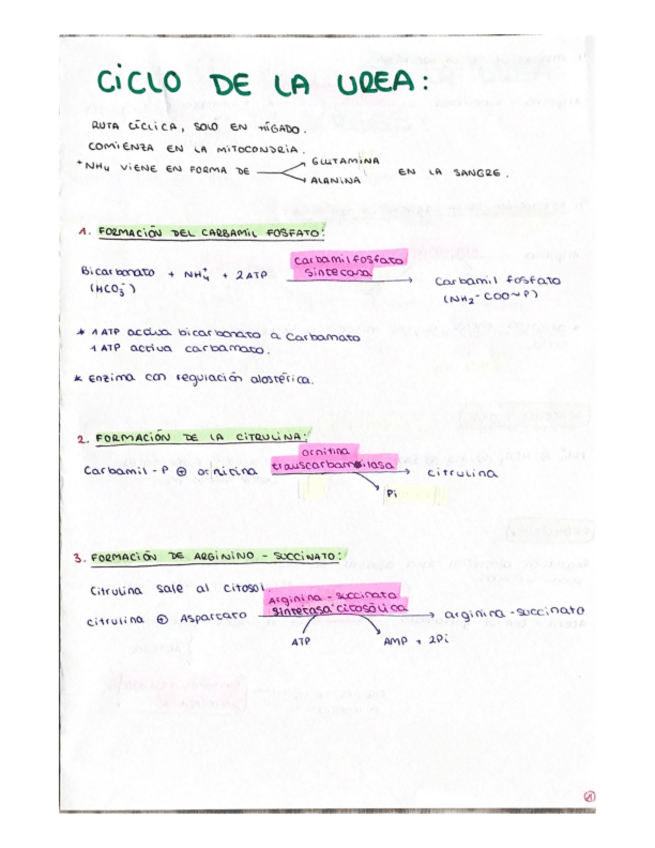 CICLO DE LA UREA:
RUTA CÍCLICA, SOLO EN HÍGADO.
COMIENZA EN LA MITOCONDRIA.
⁺NH₄ VIENE EN FORMA DE GLUTAMINA ALANINA EN LA SANGRE.
1. FORMACIÓN DEL CARBAMIL FOSFATO:
Carbamil fosfato
sintetasa
Bicarbonato + NH₄⁺ + 2ATP → Carbamil fosfato
(HCO₃⁻) (NH₂-COO~P)
* 1 ATP activa bicarbonato a carbamato
1 ATP activa carbamato.
* Enzima con regulación alostérica.
2. FORMACIÓN DE LA CITRULINA:
ornitina
transcarbamoilasa
Carbamil-P ⊕ ornitina → citrulina
Pi
3. FORMACIÓN DE ARGININO-SUCCINATO:
Citrulina sale al citosol.
Arginina-succinato
sintetasa citosólica
citrulina ⊕ Aspartato → arginina-succinato
ATP AMP + 2Pi